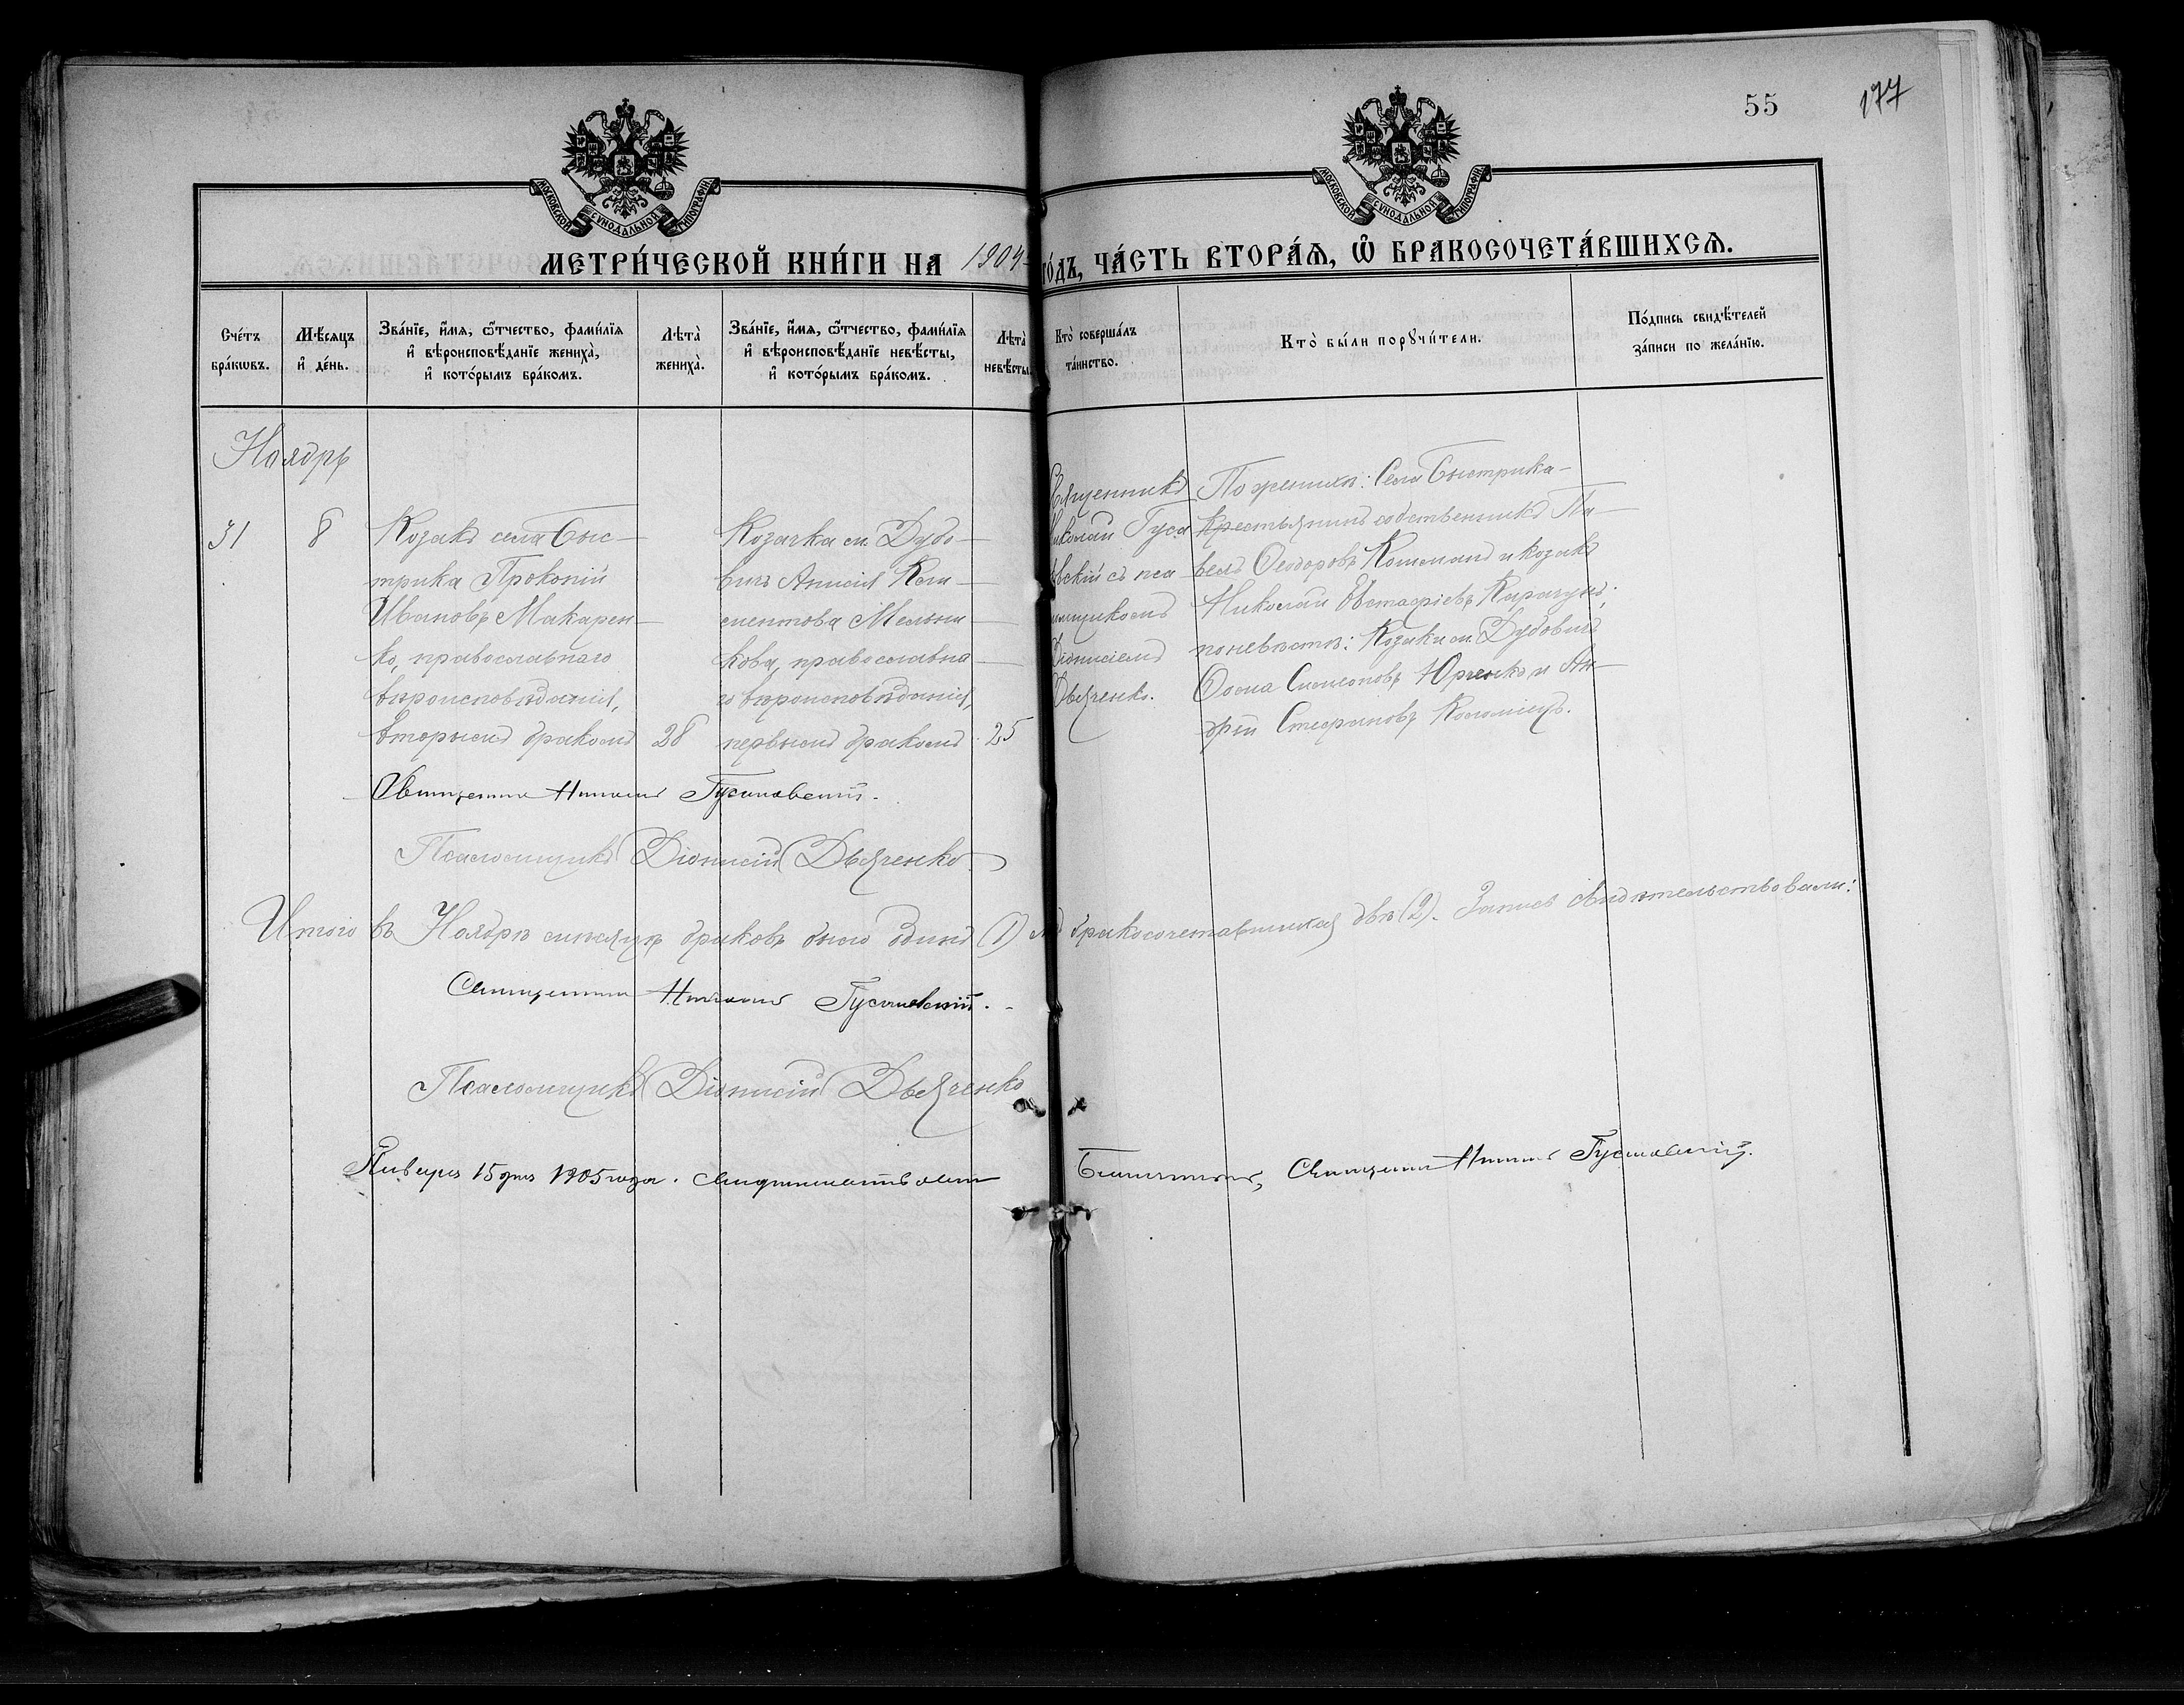 55
177
МОСКОВСКОЙ СѴНОДАЛЬНОЙ ТИПОГРАФІИ
МОСКОВСКОЙ СѴНОДАЛЬНОЙ ТИПОГРАФІИ
МЕТРИ́ЧЕСКОЙ КНИ́ГИ НА 1904 ГО́ДЪ, ЧА́СТЬ ВТОРА́Ѧ, Ѡ҆ БРАКОСОЧЕТА́ВШИХСѦ.
Сче́тъ бра́кѡвъ.
Мѣ́сяцъ и҆ де́нь.
Зва́нїе, и҆́мѧ, ѻ҆́тчество, фами́лїѧ
и҆ вѣроисповѣ́данїе жениха̀,
и҆ кото́рымъ бра́комъ.
Лѣта̀ жениха̀.
Зва́нїе, и҆́мѧ, ѻ҆́тчество, фами́лїѧ
и҆ вѣроисповѣ́данїе невѣ́сты,
и҆ кото́рымъ бра́комъ.
Лѣта̀ невѣ́сты
Кто̀ соверша́лъ та́инство.
Кто̀ бы́ли порꙋчи́тели.
По́дпись свидѣ́телей
за́писи по жела́нїю.
Ноябрь
31
8
Козакъ села Быс-
трика Прокопій
Ивановъ Макарен-
ко, православнаго
вѣроисповѣданія,
вторымъ бракомъ
28
Козачка м. Дубо-
вичъ Анисія Кли-
ментова Мельни-
кова, православна-
го вѣроисповѣданія,
первымъ бракомъ
25
Священникъ
Николай Гуса
евскій съ пса
ломщикомъ
Діонисіемъ
Дьяченко.
По женихѣ: Села Быстрика-
крестьянинъ собственникъ Па-
велъ Ѳеодоровъ Кошманъ и козакъ
Николай Евстафіевъ Карачунъ;
по невѣстѣ: Козаки м. Дубовичъ
Ѳома Симеоновъ Юрченко и Ан-
дрей Стефановъ Коломіецъ.
Священникъ Николай
Псаломщикъ Діонисій Дьяченко
Итого въ Ноябрѣ мѣсяцѣ браковъ было одинъ (1) а бракосочетавшихся двѣ (2). Запись свидѣтельствовали:
Священникъ Николай
Псаломщикъ Діонисій Дьяченко
Января 15 дня 1905 года. свидѣтельствовалъ Благочинный, Священникъ Николай